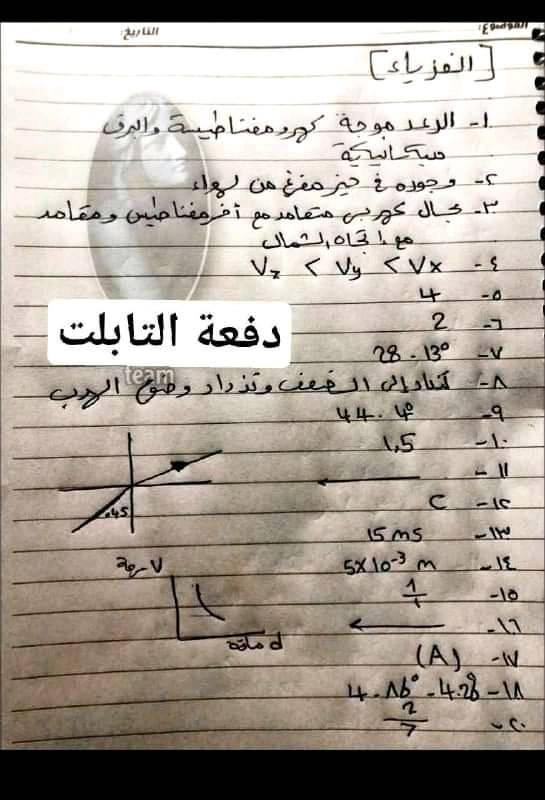 الموضوع:
التاريخ:
[الفزياء]
١- الرعد موجة كهرومغناطيسية والبرق
ميكانيكية
٢- وجوده في حيز مفرغ من لهواء
٣- مجال كهربي متعامد مع أخر مغناطيس ومقامد
مع اتجاه الشمال
٤- Vz < Vy < Vx
٥- 4
٦- 2
دفعة التابلت
team
٧- 28.13°
٨- الضعف وتزداد وضوح الهدب
٩- 44.4°
١٠- 1,5
١١-
45
١٢- C
١٣- 15 ms
١٤- 5X10-3 m
V سرعة
١٥- 1/1
١٦-
d مادة
١٧- (A)
١٨-
٢٠- 2/7